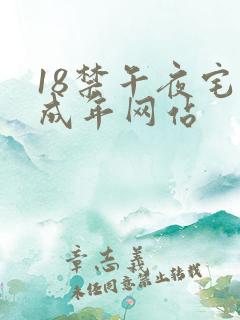 18禁午夜宅
成年网估
章志義
未经同意禁止转载